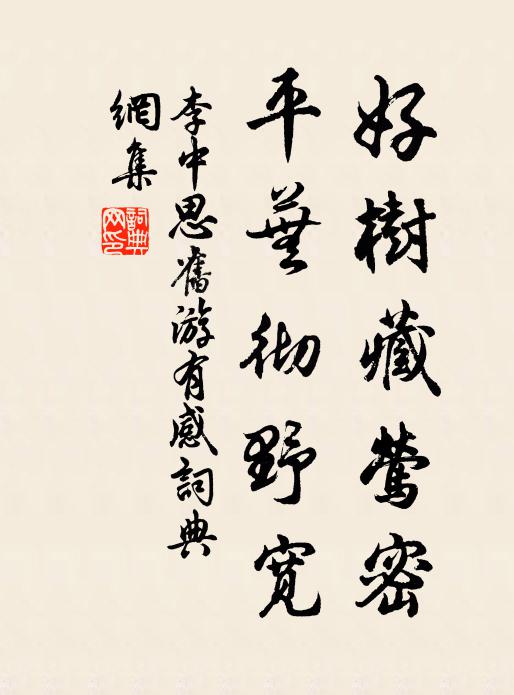 好樹藏鶯密
平蕪彻野宽
李中思舊游有感詞典
網集
詞典网印